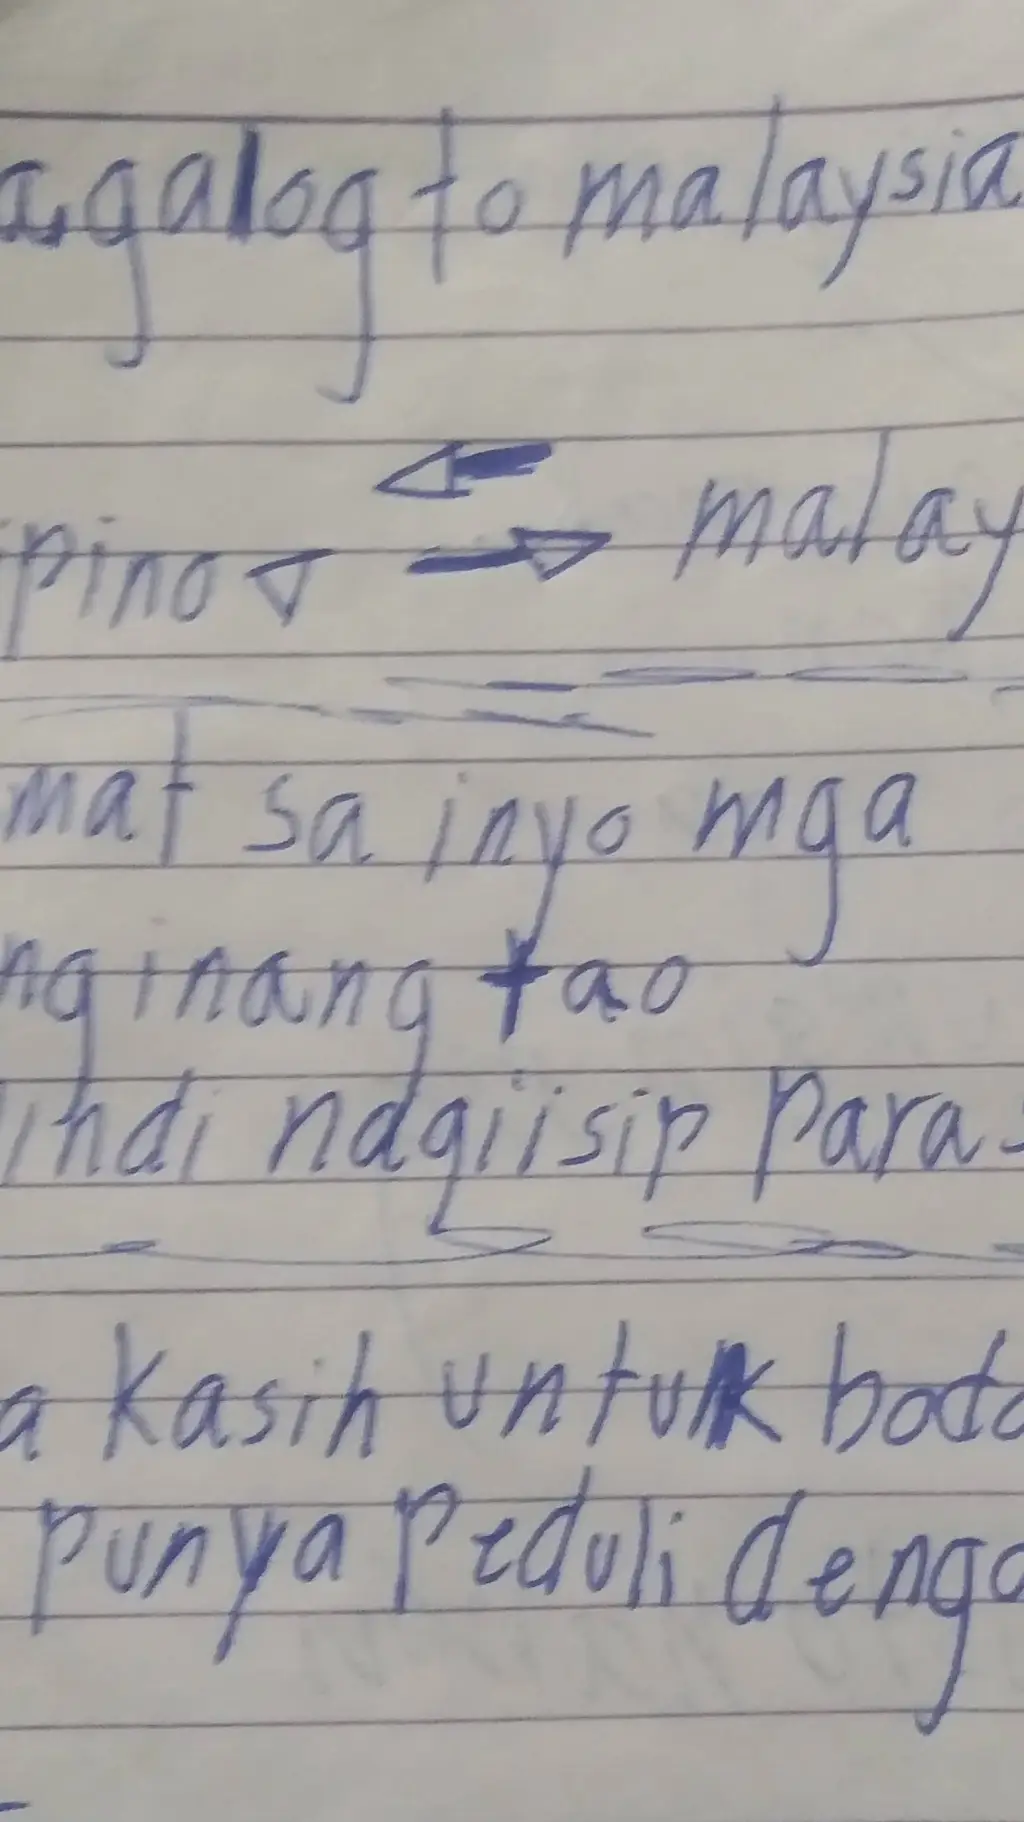 agalog to malaysia
ipino malay
mat sa inyo mga
nginang tao
indi nagiisip para s
a kasih untuk bodo
punya peduli denga